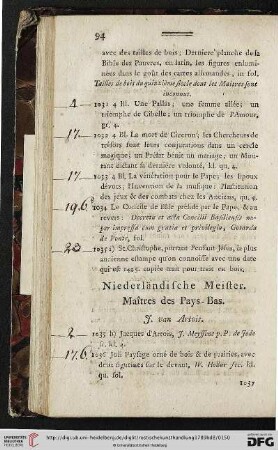 94
avec des tailles de bois; Derniere planche de la
Bible des Pauvres, en latin, les figures enlumi-
nées dans le goût des cartes allemandes, in fol.
Tailles de bois du quinzième siècle dont les Maitres sont
inconnus.
1031 4 Bl. Une Pallas; une femme ailée; un
triomphe de Cibelle; un triomphe de l'Amour,
gr. 4.
17. 1032 4 Bl. La mort de Ciceron; les Chercheurs de
trésors font leurs conjurations dans un cercle
magique; un Prélat bénit un mariage; un Mou-
rant dictant sa dernière volonté, kl. qu. 4.
17. 1033 4 Bl. La vénération pour le Pape; les Epoux
dévots; l'Inventeur de la musique; l'Institution
des jeux & des combats chez les Anciens. kl. qu. 4.
19.6 1034 Le Concile de Bâle présidé par le Pape, & au
revers: Decreta et acta Concilii Basiliensis nu-
per impressa cum gratia et privilegio, Gerardo
de fol.
1035 a) St. Christophe, portant l'enfant Jésus, la plus
ancienne estampe qu'on connoisse avec une date
qui est 1423. copiée trait pour trait en bois.
Niederländische Meister.
Maîtres des Pays-Bas.
J. van Artois.
2 1035 b) Jacques d'Artois, J. Meyssens p. P. de Jode
sc. kl. 4.
17.6 1036 Joli Paysage orné de bois & de prairies, avec
deux figures sur le devant, W. Hollar fec. kl.
qu. fol.
1037
http://digi.ub.uni-heidelberg.de/diglit/rostischekunsthandlung1789bd6/0150
© Universitätsbibliothek Heidelberg